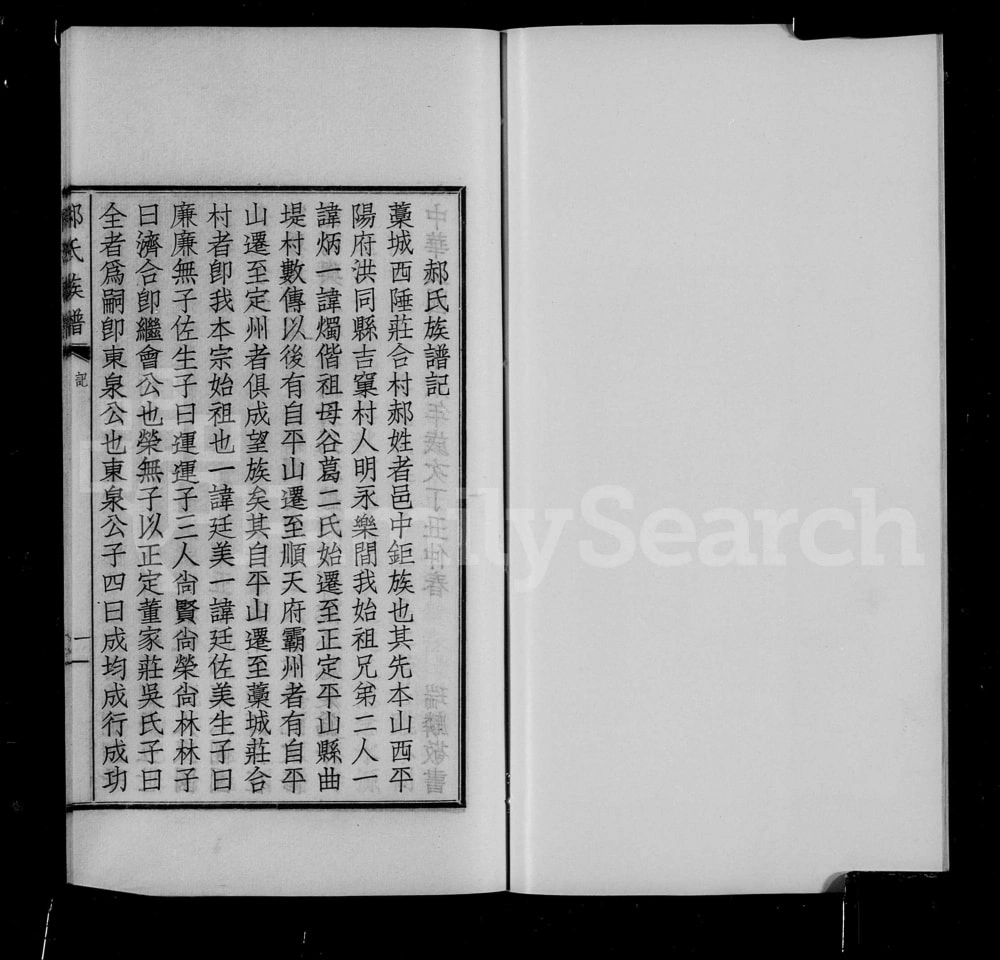 郝氏族譜記
藁城西陲莊合村郝姓者邑中鉅族也其先本山西平
陽府洪同縣吉窠村人明永樂間我始祖兄弟二人一
諱炳一諱燭偕祖母谷葛二氏始遷至正定平山縣曲
堤村數傳以後有自平山遷至順天府霸州者有自平
山遷至定州者俱成望族矣其自平山遷至藁城莊合
村者卽我本宗始祖也一諱廷美一諱廷佐美生子曰
廉廉無子佐生子曰運運子三人尙賢尙榮尙林林子
曰濟合卽繼會公也榮無子以正定董家莊吳氏子曰
全者爲嗣卽東泉公也東泉公子四曰成均成行成功
郝氏族譜
記
一
中華 年歲次丁丑仲春 瑞麟敬書
FamilySearch